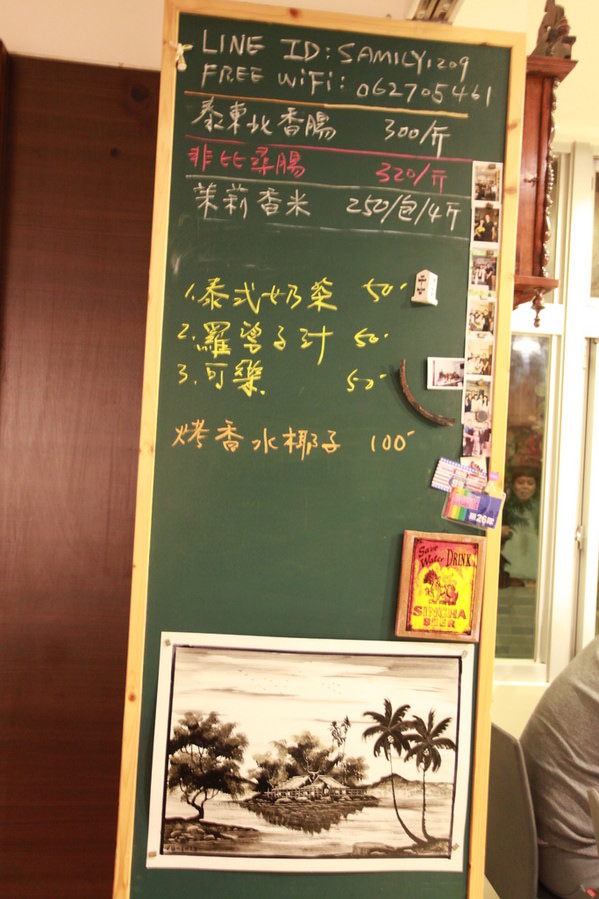 LINE ID: SAMILY1209
FREE WiFi: 062705461
泰東北香腸 300/斤
非比尋腸 320/斤
茉莉香米 250/包/4斤
1.泰式奶茶 50
2.羅望子汁 50
3.可樂 50
烤香水椰子 100
第26屆
Save Water DRINK
SINGHA
BEER